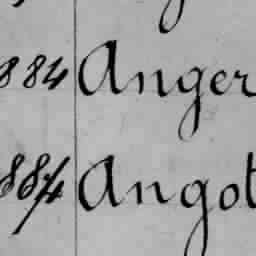 884 Anger
884 Angot